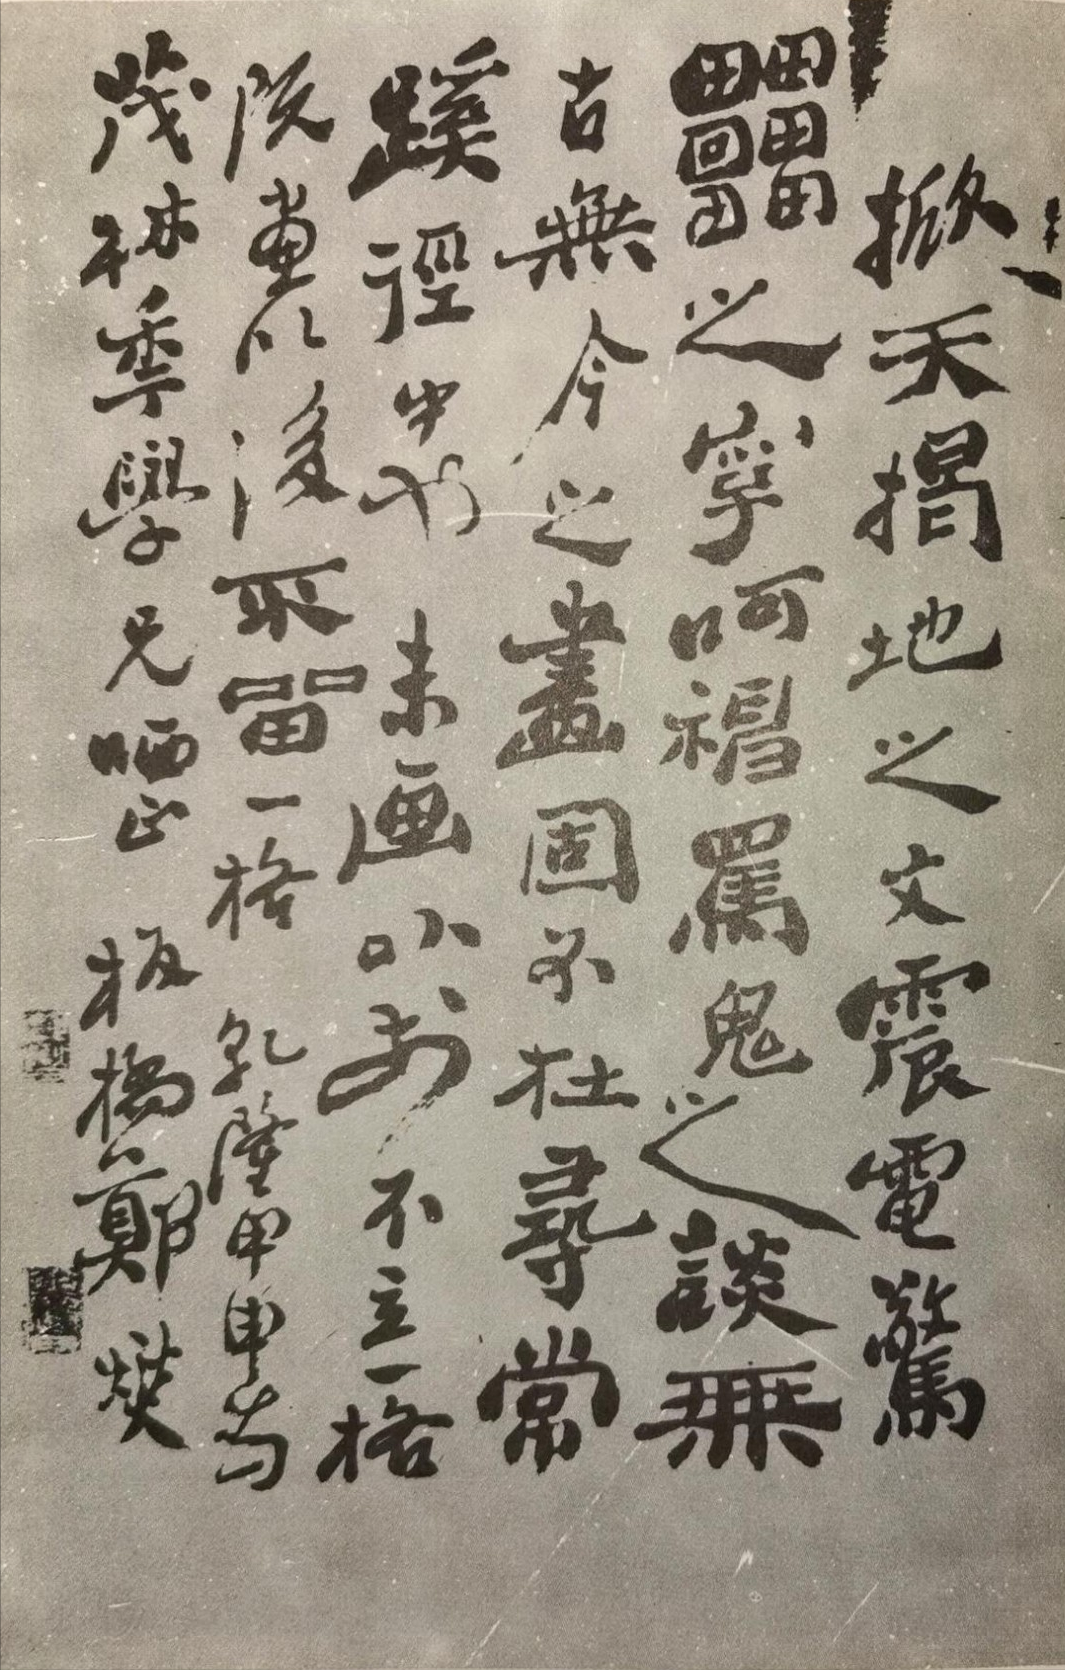 掀天揭地之文震電驚
靁之字呵神罵鬼之談無
古無今之畫固不在尋常
蹊徑中也未画以前不立一格
既畫以後不留一格 乾隆甲申
茂林季學兄哂正 板橋鄭燮